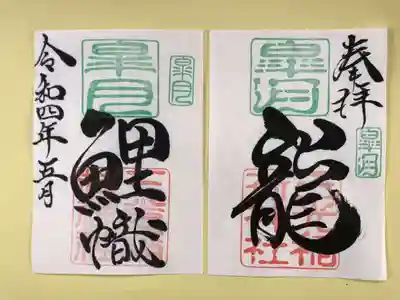 奉拝
皐月
皐月
龍
皐月
皐月
鯉幟
令和四年五月